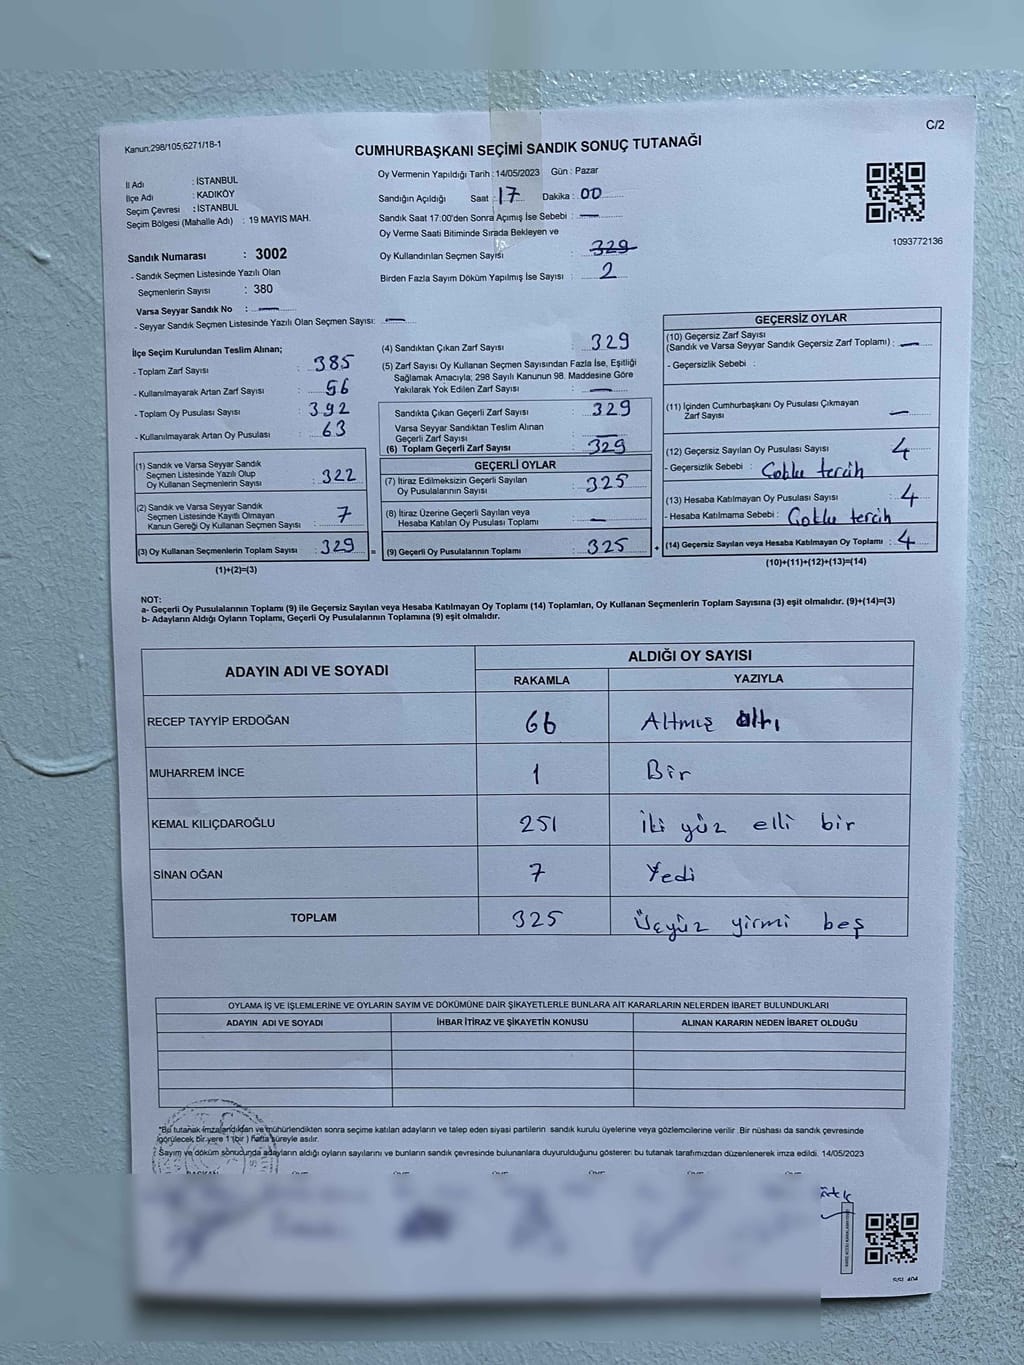 C/2
Kanun:298/105;6271/18-1
CUMHURBAŞKANI SEÇİMİ SANDIK SONUÇ TUTANAĞI
İl Adı : İSTANBUL
İlçe Adı : KADIKÖY
Seçim Çevresi : İSTANBUL
Seçim Bölgesi (Mahalle Adı) : 19 MAYIS MAH.
Sandık Numarası : 3002
- Sandık Seçmen Listesinde Yazılı Olan
Seçmenlerin Sayısı : 380
Varsa Seyyar Sandık No : —
- Seyyar Sandık Seçmen Listesinde Yazılı Olan Seçmen Sayısı: —
Oy Vermenin Yapıldığı Tarih : 14/05/2023 Gün : Pazar
Sandığın Açıldığı Saat : 17 Dakika : 00
Sandık Saat 17:00'den Sonra Açımış İse Sebebi : —
Oy Verme Saati Bitiminde Sırada Bekleyen ve
Oy Kullandırılan Seçmen Sayısı : 329
Birden Fazla Sayım Döküm Yapılmış İse Sayısı : 2
1093772136
İlçe Seçim Kurulundan Teslim Alınan;
- Toplam Zarf Sayısı : 385
- Kullanılmayarak Artan Zarf Sayısı : 56
- Toplam Oy Pusulası Sayısı : 392
- Kullanılmayarak Artan Oy Pusulası : 63
(1) Sandık ve Varsa Seyyar Sandık
Seçmen Listesinde Yazılı Olup
Oy Kullanan Seçmenlerin Sayısı : 322
(2) Sandık ve Varsa Seyyar Sandık
Seçmen Listesinde Kayıtlı Olmayan
Kanun Gereği Oy Kullanan Seçmen Sayısı : 7
(3) Oy Kullanan Seçmenlerin Toplam Sayısı : 329 =
(1)+(2)=(3)
(4) Sandıktan Çıkan Zarf Sayısı : 329
(5) Zarf Sayısı Oy Kullanan Seçmen Sayısından Fazla İse, Eşitliği
Sağlamak Amacıyla; 298 Sayılı Kanunun 98. Maddesine Göre
Yakılarak Yok Edilen Zarf Sayısı : —
Sandıkta Çıkan Geçerli Zarf Sayısı : 329
Varsa Seyyar Sandıktan Teslim Alınan
Geçerli Zarf Sayısı : —
(6) Toplam Geçerli Zarf Sayısı : 329
GEÇERLİ OYLAR
(7) İtiraz Edilmeksizin Geçerli Sayılan
Oy Pusulalarının Sayısı : 325
(8) İtiraz Üzerine Geçerli Sayılan veya
Hesaba Katılan Oy Pusulası Toplamı : —
(9) Geçerli Oy Pusulalarının Toplamı : 325 +
GEÇERSİZ OYLAR
(10) Geçersiz Zarf Sayısı
(Sandık ve Varsa Seyyar Sandık Geçersiz Zarf Toplamı) : —
- Geçersizlik Sebebi :
(11) İçinden Cumhurbaşkanı Oy Pusulası Çıkmayan
Zarf Sayısı : —
(12) Geçersiz Sayılan Oy Pusulası Sayısı : 4
- Geçersizlik Sebebi : Çoklu tercih
(13) Hesaba Katılmayan Oy Pusulası Sayısı : 4
- Hesaba Katılmama Sebebi : Çoklu tercih
(14) Geçersiz Sayılan veya Hesaba Katılmayan Oy Toplamı : 4
(10)+(11)+(12)+(13)=(14)
NOT:
a- Geçerli Oy Pusulalarının Toplamı (9) ile Geçersiz Sayılan veya Hesaba Katılmayan Oy Toplamı (14) Toplamları, Oy Kullanan Seçmenlerin Toplam Sayısına (3) eşit olmalıdır. (9)+(14)=(3)
b- Adayların Aldığı Oyların Toplamı, Geçerli Oy Pusulalarının Toplamına (9) eşit olmalıdır.
ADAYIN ADI VE SOYADI ALDIĞI OY SAYISI
RAKAMLA YAZIYLA
RECEP TAYYİP ERDOĞAN 66 Altmış altı
MUHARREM İNCE 1 Bir
KEMAL KILIÇDAROĞLU 251 İki yüz elli bir
SİNAN OĞAN 7 Yedi
TOPLAM 325 Üçyüz yirmi beş
OYLAMA İŞ VE İŞLEMLERİNE VE OYLARIN SAYIM VE DÖKÜMÜNE DAİR ŞİKAYETLERLE BUNLARA AİT KARARLARIN NELERDEN İBARET BULUNDUKLARI
ADAYIN ADI VE SOYADI İHBAR İTİRAZ VE ŞİKAYETİN KONUSU ALINAN KARARIN NEDEN İBARET OLDUĞU
*Bu tutanak imzalandıktan ve mühürlendikten sonra seçime katılan adayların ve talep eden siyasi partilerin sandık kurulu üyelerine veya gözlemcilerine verilir .Bir nüshası da sandık çevresinde
görülecek bir yere 1 (bir ) hafta süreyle asılır.
Sayım ve döküm sonucunda adayların aldığı oyların sayılarını ve bunların sandık çevresinde bulunanlara duyurulduğunu gösteren bu tutanak tarafımızdan düzenlenerek imza edildi. 14/05/2023